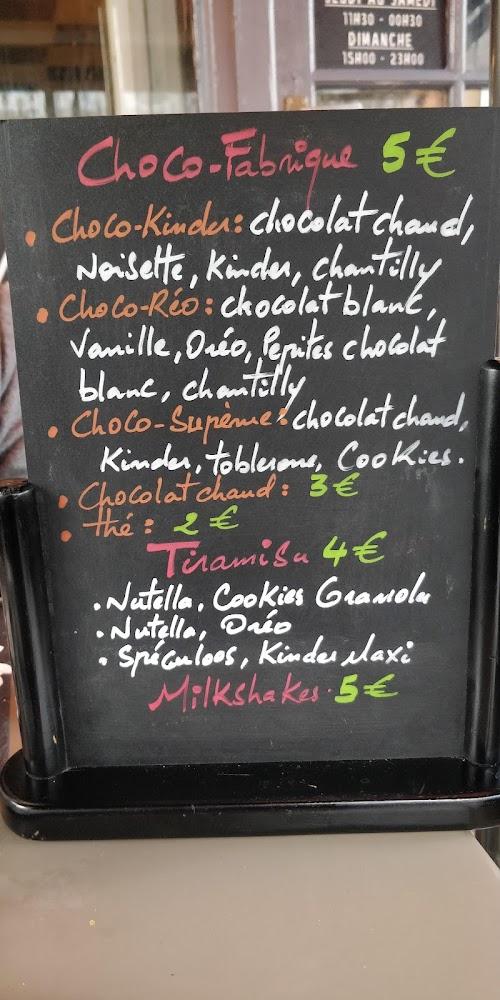 JEUDI AU SAMEDI
11H30 - 00H30
DIMANCHE
15H00 - 23H00
Choco-Fabrique 5€
• Choco-Kinder: chocolat chaud,
Noisette, Kinder, chantilly
• Choco-Réo: chocolat blanc,
Vanille, Oréo, Pepites chocolat
blanc, chantilly
• Choco-Suprème: chocolat chaud,
Kinder, toblerone, Cookies.
• Chocolat chaud: 3€
• thé: 2€
Tiramisu 4€
• Nutella, Cookies Granola
• Nutella, Oréo
• Spéculoos, Kinder Maxi
Milkshakes. 5€